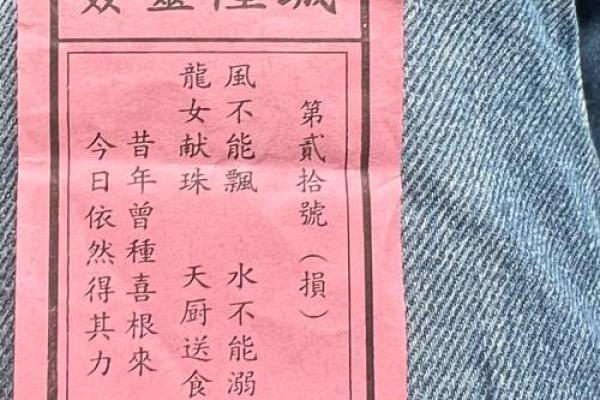 城隍靈
第貳拾號（損）
風不能飄　水不能溺
龍女献珠　天厨送食
昔年曾種喜根來
今日依然得其力